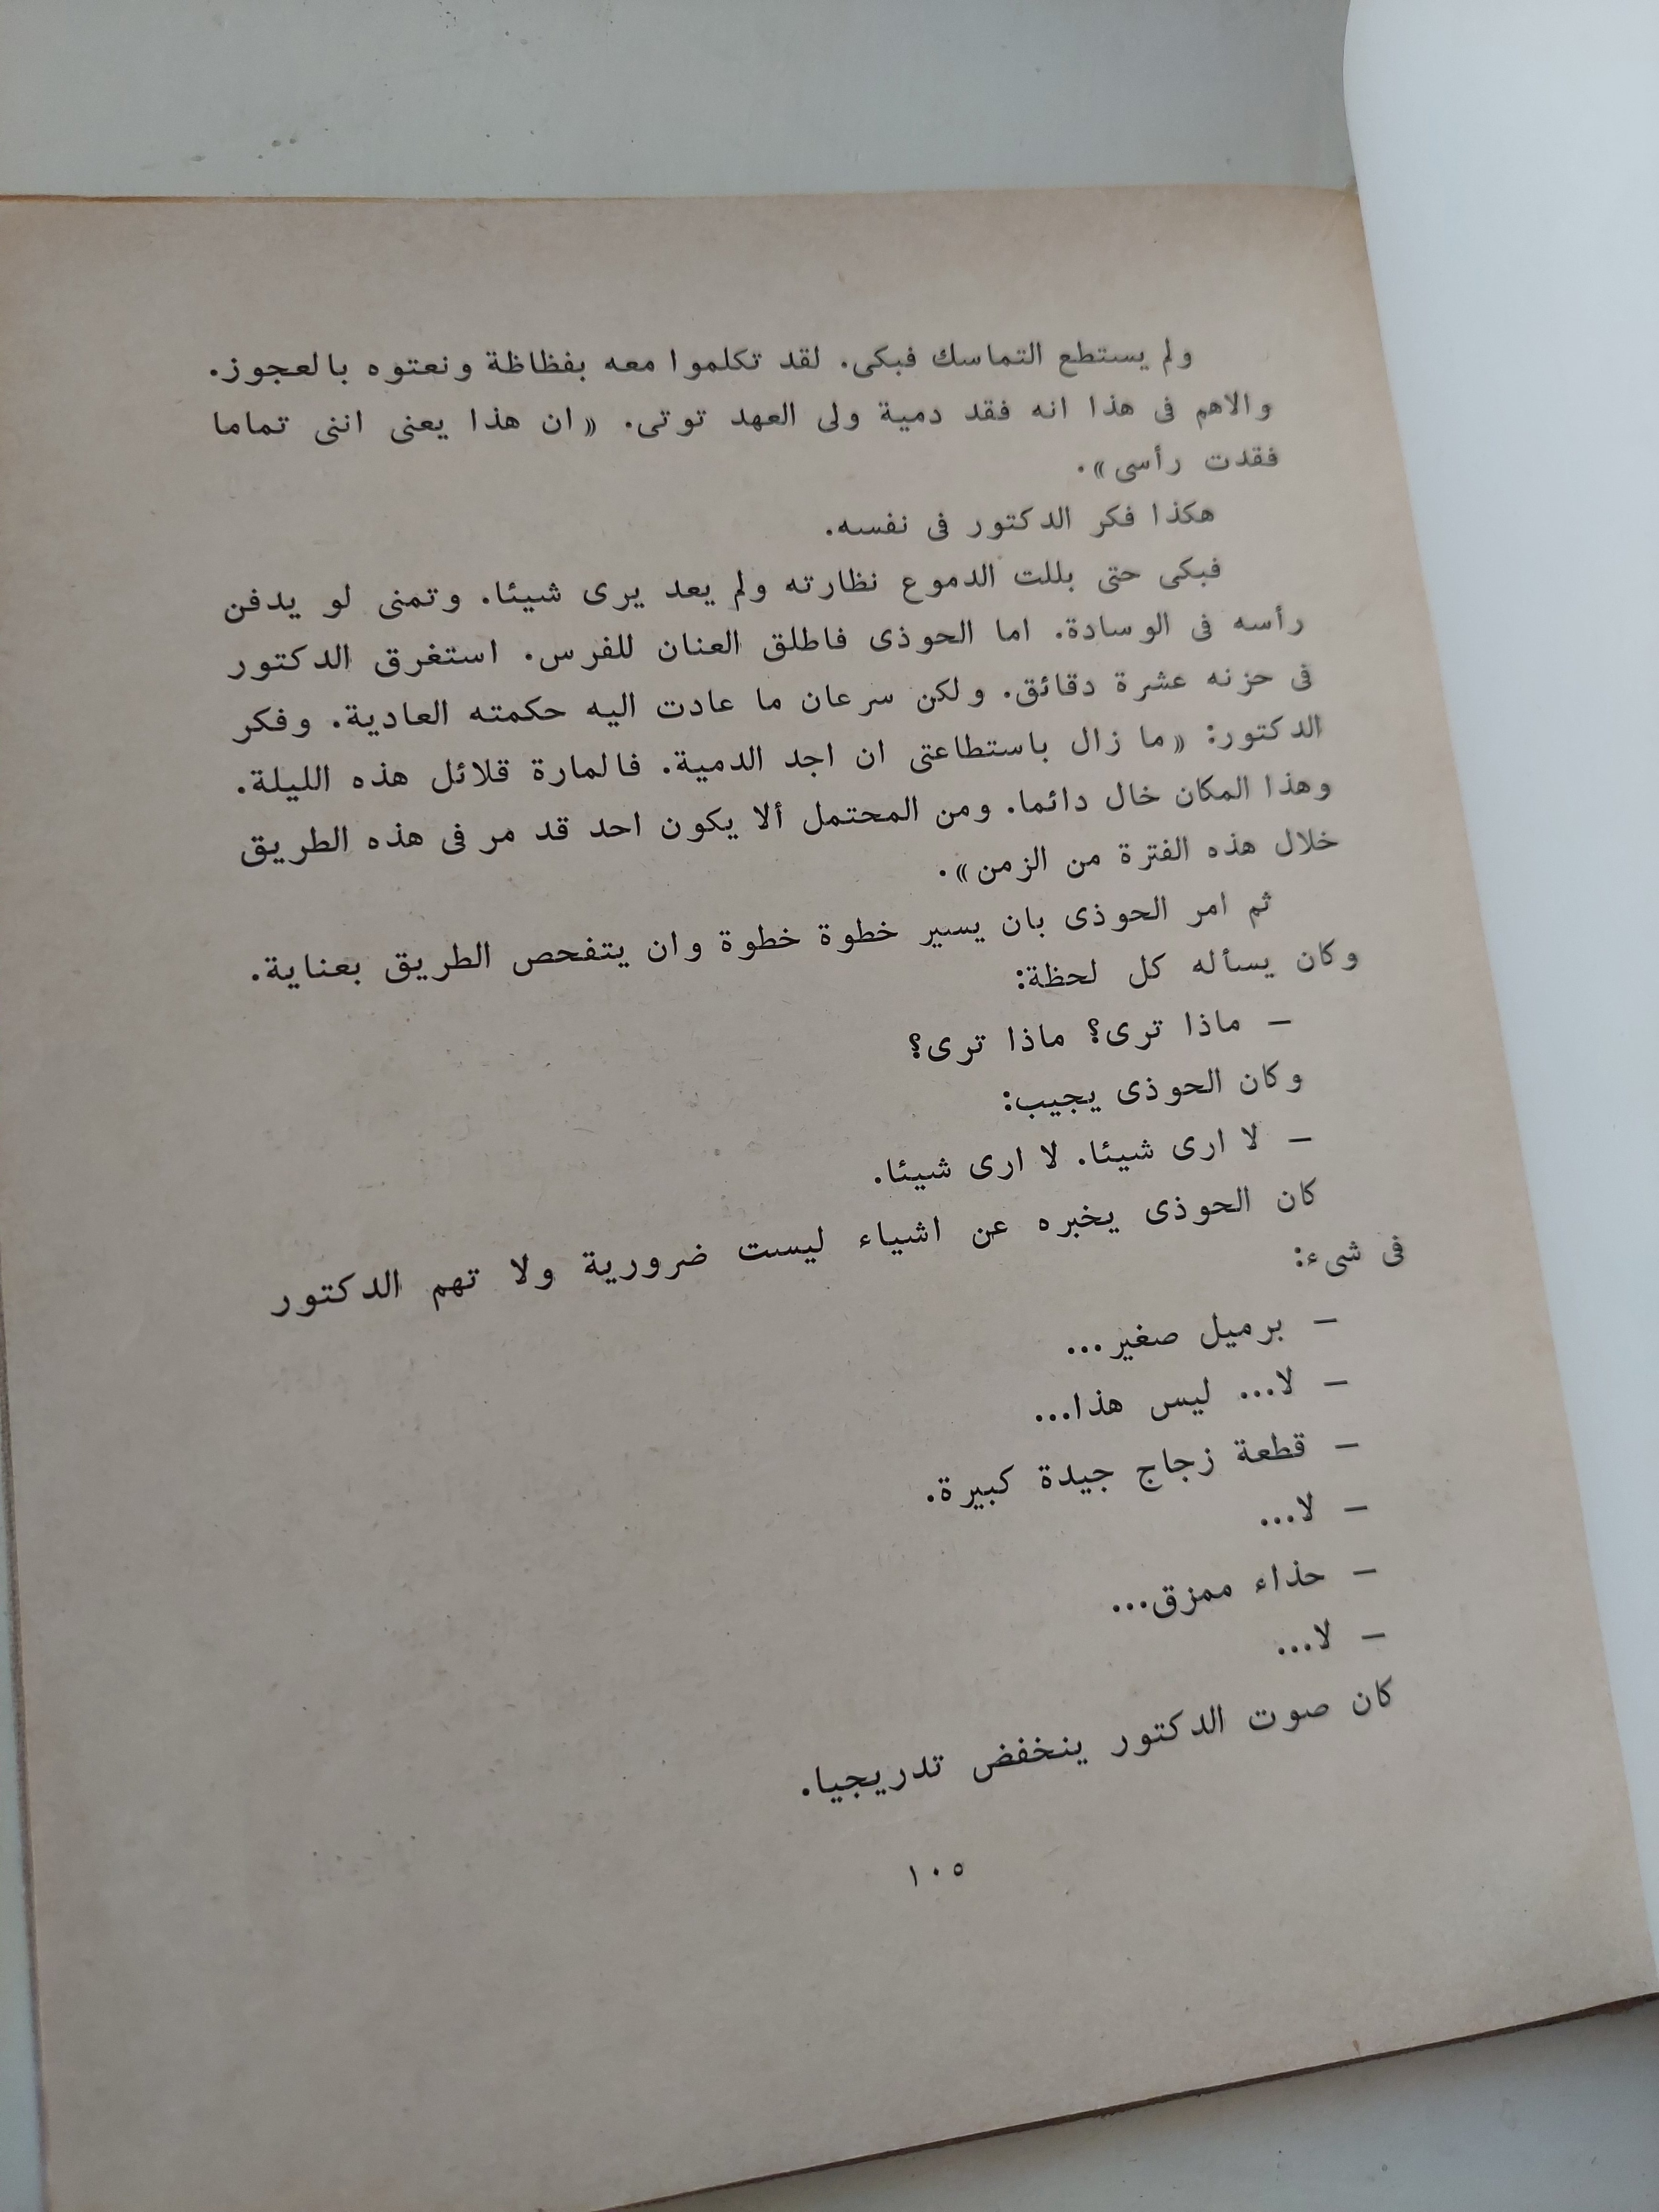 ولم يستطع التماسك فبكى. لقد تكلموا معه بفظاظة ونعتوه بالعجوز.
والاهم فى هذا انه فقد دمية ولى العهد توتى. «ان هذا يعنى اننى تماما
فقدت رأسى».
هكذا فكر الدكتور فى نفسه.
فبكى حتى بللت الدموع نظارته ولم يعد يرى شيئا. وتمنى لو يدفن
رأسه فى الوسادة. اما الحوذى فاطلق العنان للفرس. استغرق الدكتور
فى حزنه عشرة دقائق. ولكن سرعان ما عادت اليه حكمته العادية. وفكر
الدكتور: «ما زال باستطاعتى ان اجد الدمية. فالمارة قلائل هذه الليلة.
وهذا المكان خال دائما. ومن المحتمل ألا يكون احد قد مر فى هذه الطريق
خلال هذه الفترة من الزمن».
ثم امر الحوذى بان يسير خطوة خطوة وان يتفحص الطريق بعناية.
وكان يسأله كل لحظة:
– ماذا ترى؟ ماذا ترى؟
وكان الحوذى يجيب:
– لا ارى شيئا. لا ارى شيئا.
كان الحوذى يخبره عن اشياء ليست ضرورية ولا تهم الدكتور
فى شىء:
– برميل صغير...
– لا... ليس هذا...
– قطعة زجاج جيدة كبيرة.
– لا...
– حذاء ممزق...
– لا...
كان صوت الدكتور ينخفض تدريجيا.
١٠٥